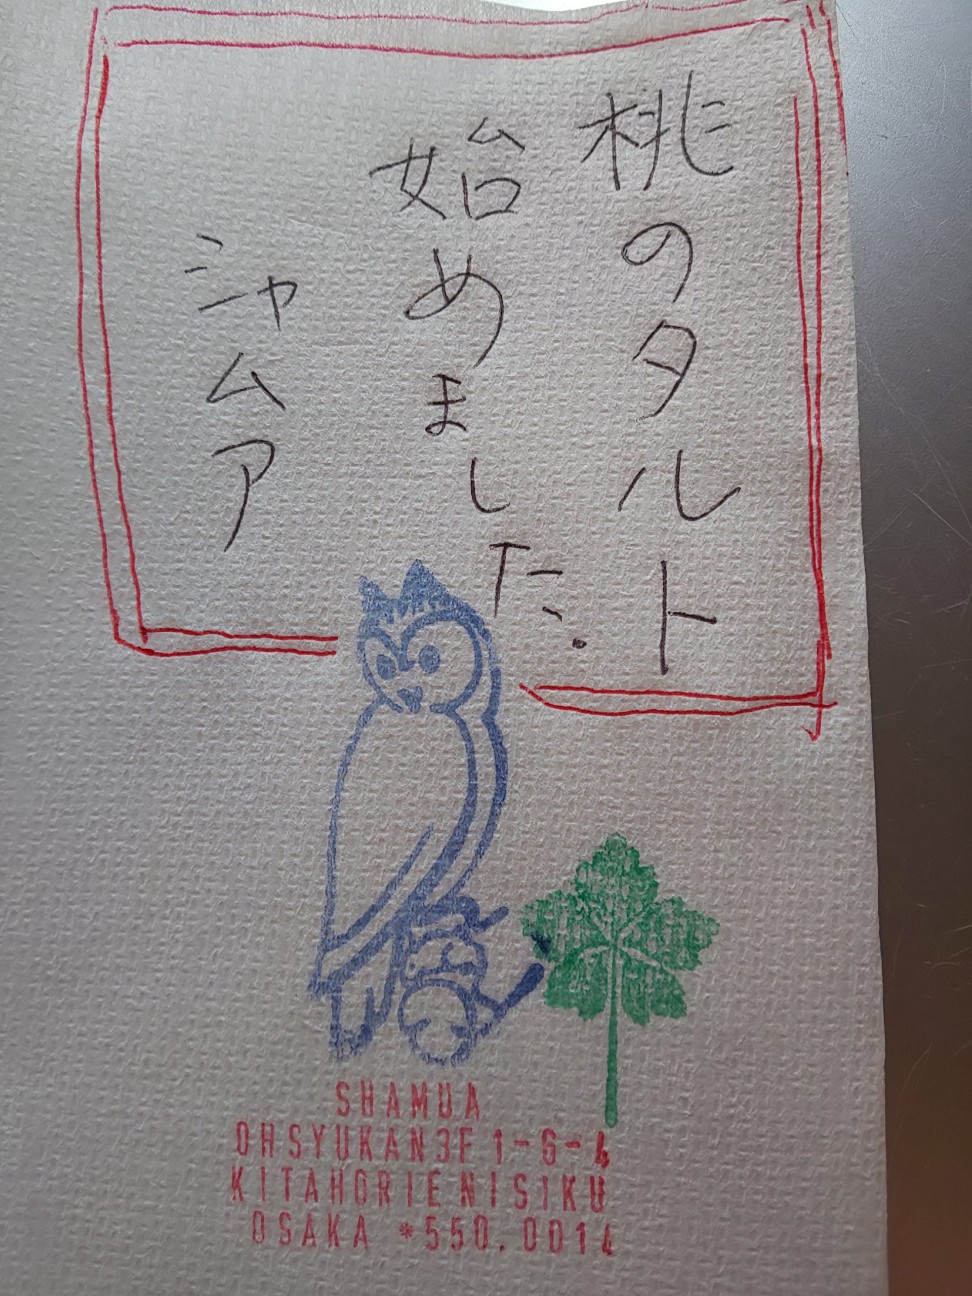 桃のタルト
始めました.
シャムア
SHAMUA
OHSYUKAN3F 1-6-4
KITAHORIE NISIKU
OSAKA *550.0014